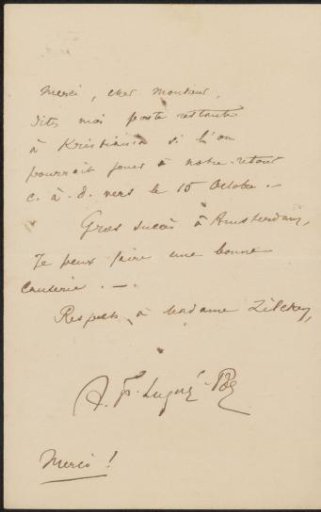 Merci, cher Monsieur,
dites moi poste restante
à Kristiania si l'on
pourrait jouer à notre retour
c. à. d. vers le 15 Octobre. -
Gros succès à Amsterdam,
Je peux faire une bonne
causerie. -.
Respects à Madame Zilcken,
A. F. Lugné-Poe
Merci !